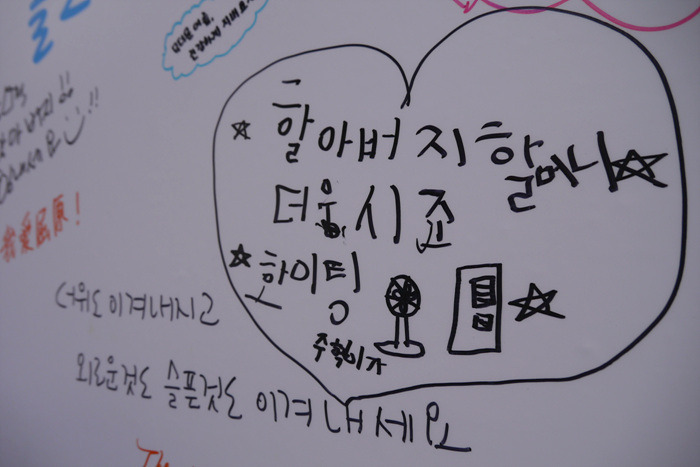 할아버지 할머니
더웁시죠
화이팅
주혁이가
我爱屈原!
더위도 이겨내시고
외로운것도 슬픈것도 이겨내세요